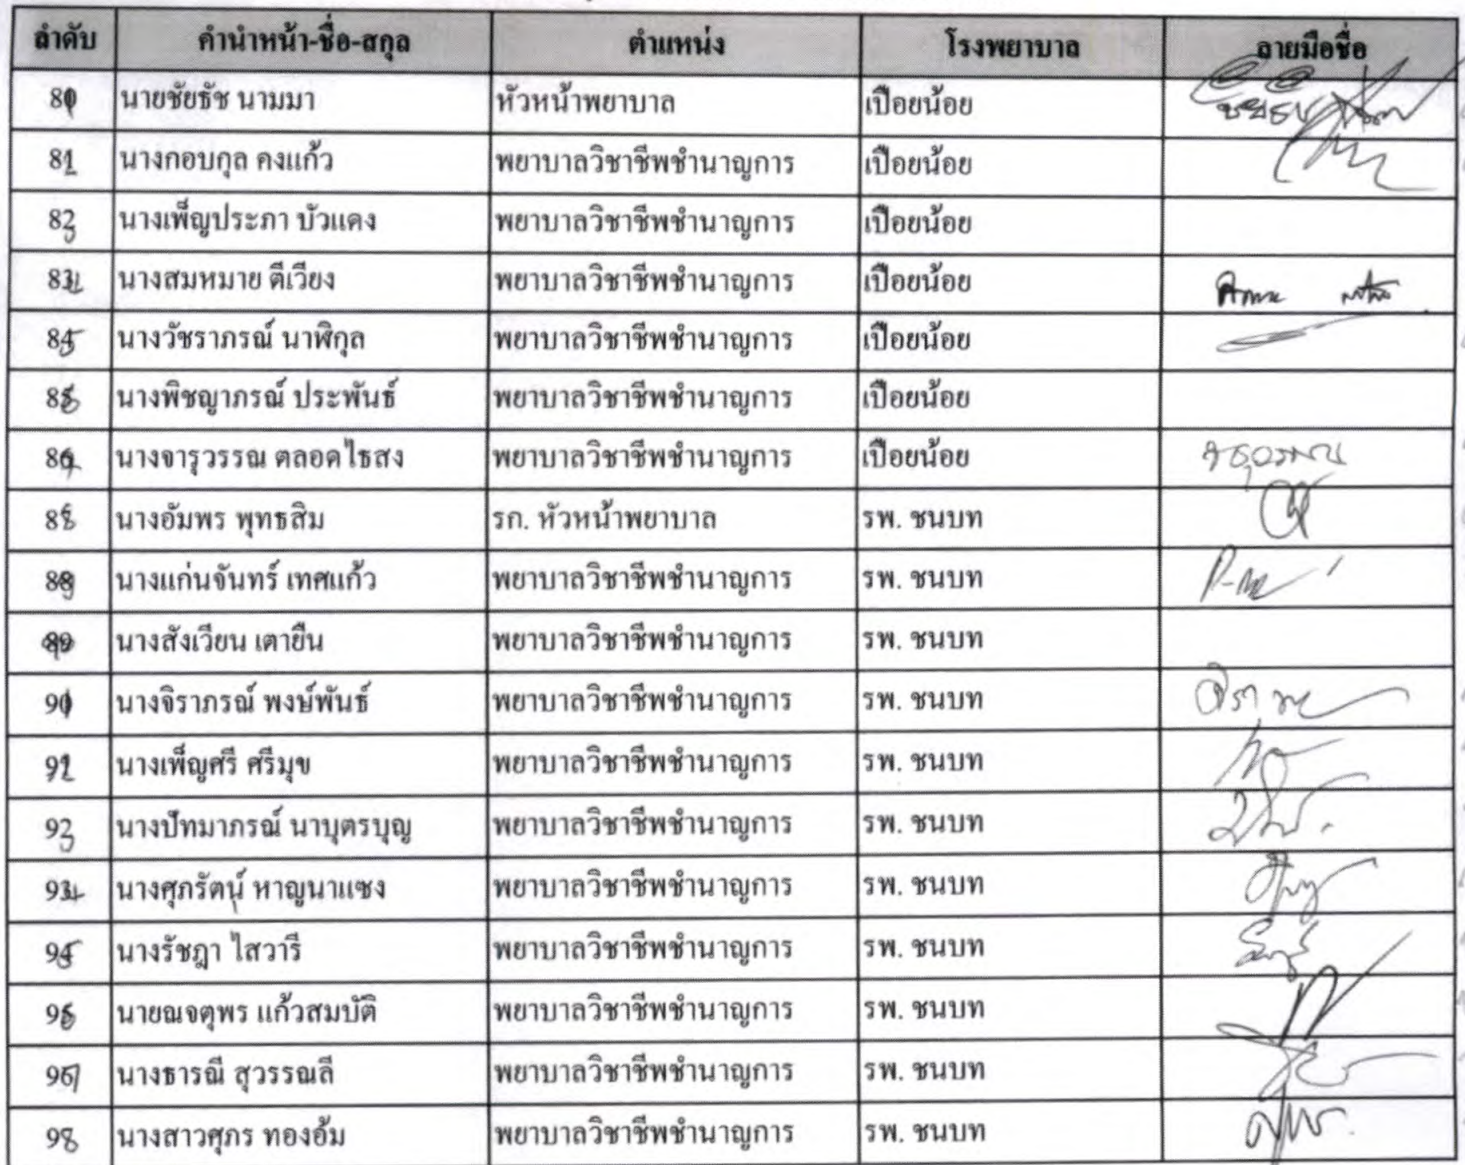 ลำดับ คำนำหน้า-ชื่อ-สกุล ตำแหน่ง โรงพยาบาล ลายมือชื่อ
80 นายชัยธัช นามมา หัวหน้าพยาบาล เปือยน้อย
81 นางกอบกุล คงแก้ว พยาบาลวิชาชีพชำนาญการ เปือยน้อย
82 นางเพ็ญประภา บัวแดง พยาบาลวิชาชีพชำนาญการ เปือยน้อย
83 นางสมหมาย ตีเวียง พยาบาลวิชาชีพชำนาญการ เปือยน้อย
84 นางวัชราภรณ์ นาฬิกุล พยาบาลวิชาชีพชำนาญการ เปือยน้อย
85 นางพิชญาภรณ์ ประพันธ์ พยาบาลวิชาชีพชำนาญการ เปือยน้อย
86 นางจารุวรรณ ตลอดไธสง พยาบาลวิชาชีพชำนาญการ เปือยน้อย จารุวรรณ
87 นางอัมพร พุทธสิม รก. หัวหน้าพยาบาล รพ. ชนบท
88 นางแก่นจันทร์ เทศแก้ว พยาบาลวิชาชีพชำนาญการ รพ. ชนบท
89 นางสังเวียน เตายืน พยาบาลวิชาชีพชำนาญการ รพ. ชนบท
90 นางจิราภรณ์ พงษ์พันธ์ พยาบาลวิชาชีพชำนาญการ รพ. ชนบท
91 นางเพ็ญศรี ศรีมุข พยาบาลวิชาชีพชำนาญการ รพ. ชนบท
92 นางปัทมาภรณ์ นาบุตรบุญ พยาบาลวิชาชีพชำนาญการ รพ. ชนบท
93 นางศุภรัตน์ุ หาญนาแซง พยาบาลวิชาชีพชำนาญการ รพ. ชนบท
94 นางรัชฎา ไสวารี พยาบาลวิชาชีพชำนาญการ รพ. ชนบท
95 นายณจตุพร แก้วสมบัติ พยาบาลวิชาชีพชำนาญการ รพ. ชนบท
96 นางธารณี สุวรรณลี พยาบาลวิชาชีพชำนาญการ รพ. ชนบท
98 นางสาวศุภร ทองอ้ม พยาบาลวิชาชีพชำนาญการ รพ. ชนบท